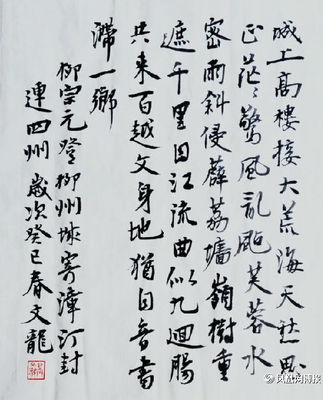 城上高樓接大荒海天愁思
正茫々驚風亂颭芙蓉水
密雨斜侵薜荔墻嶺樹重
遮千里目江流曲似九迴腸
共來百越文身地猶自音書
滯一鄉
柳宗元登柳州城寄漳汀封
連四州 歲次癸巳春文龍
凤凰网博报